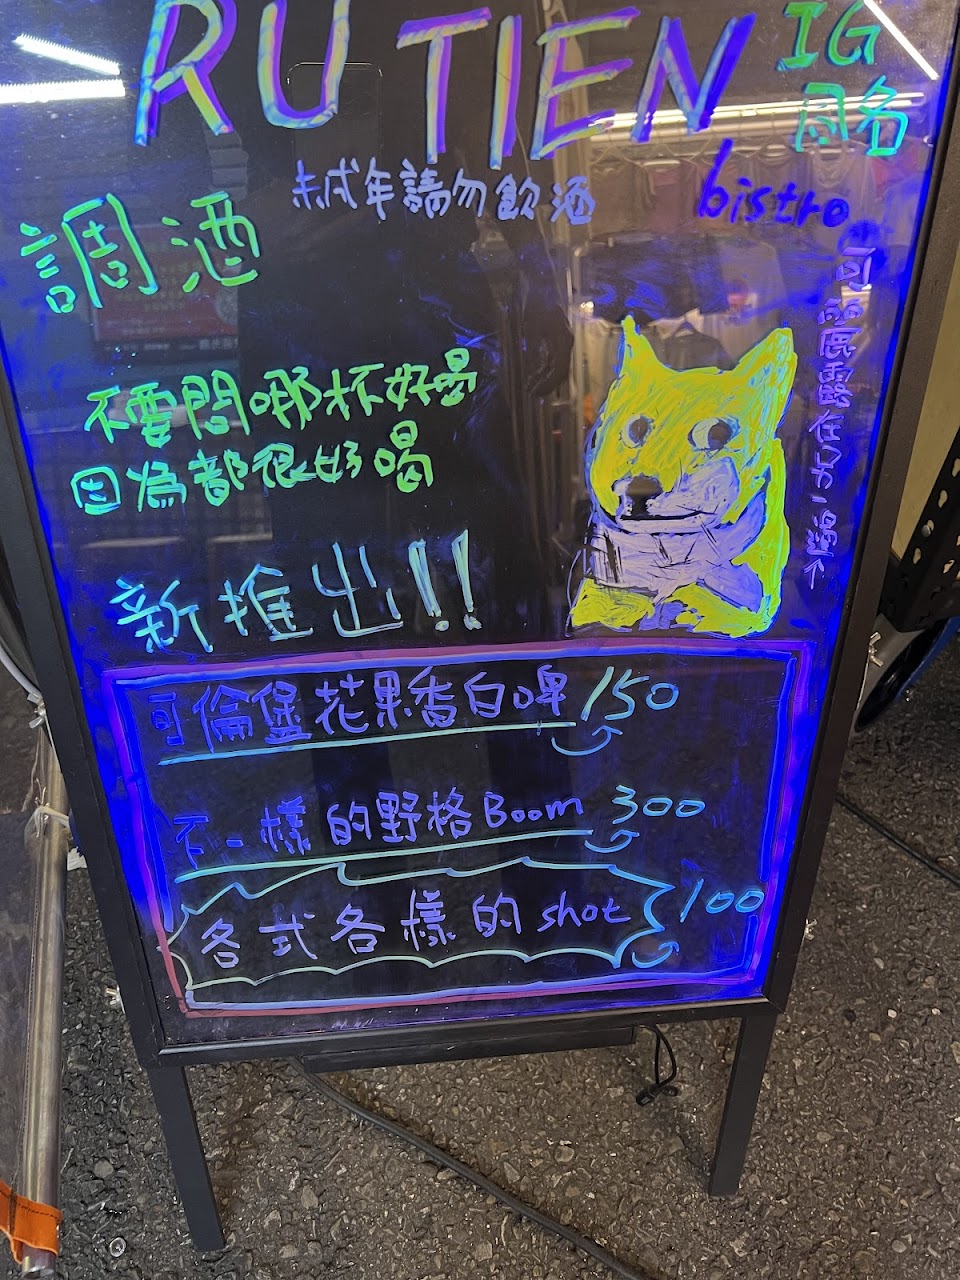 RU TIEN
IG
同名
未成年請勿飲酒
bistro
調酒
不要問哪杯好喝
因為都很好喝
新推出!!
可倫堡花果香白啤 150
不一樣的野格Boom 300
各式各樣的shot 100